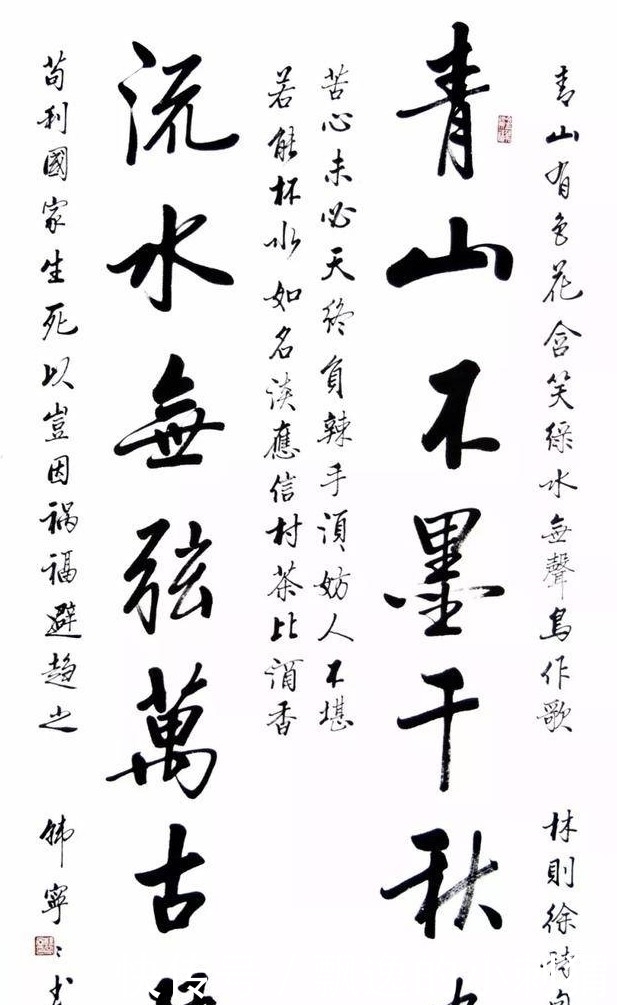 青山有色花含笑綠水無聲鳥作歌 林則徐詩
青山不墨千秋
苦心未必天終負辣手須妨人不堪
若能杯水如名淡應信村茶比酒香
流水無弦萬古
苟利國家生死以豈因祸福避趨之 韩寧〻书